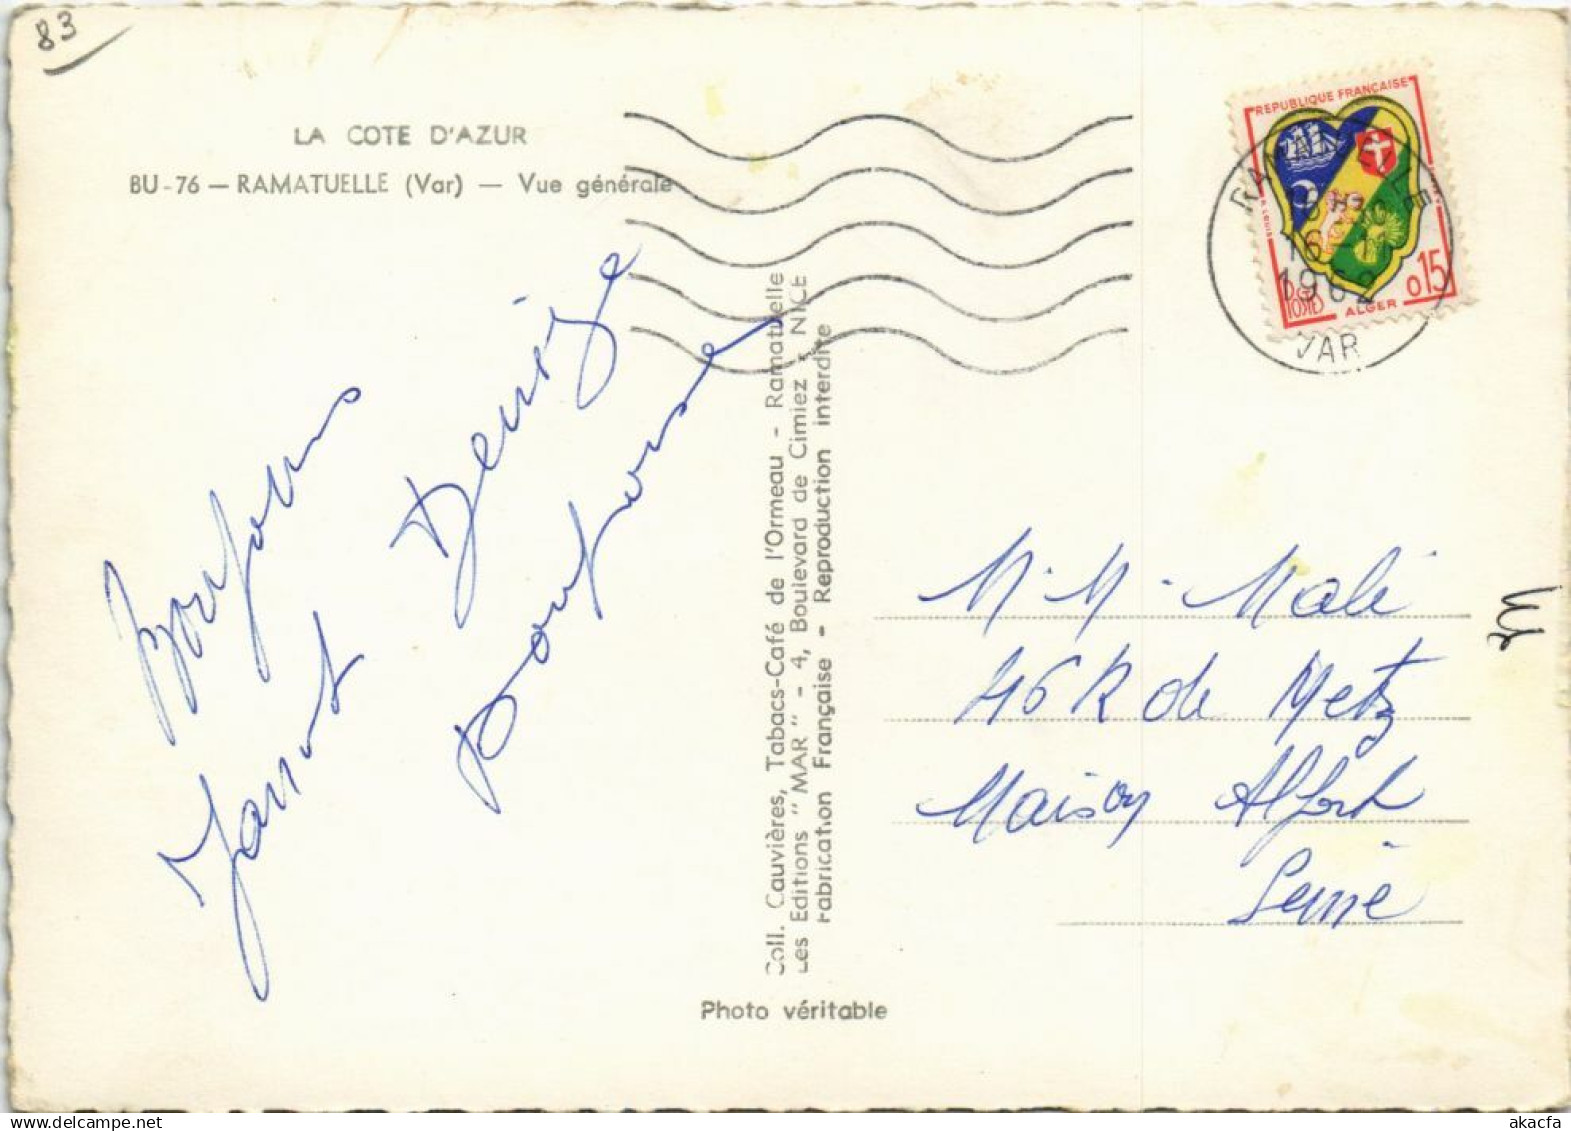 83
LA COTE D'AZUR
BU-76 — RAMATUELLE (Var) — Vue générale
Bonjour
Denise
REPUBLIQUE FRANÇAISE
POSTES
ALGER
0,15
RAMATUELLE
16
1962
VAR
Coll. Cauvières, Tabacs-Café de l'Ormeau - Ramatuelle
Les Editions "MAR" - 4, Boulevard de Cimiez - NICE
Fabrication Française - Reproduction interdite
M. M. Malé
46 R de Metz
Maison Alfort
Seine
Photo véritable
akacfa